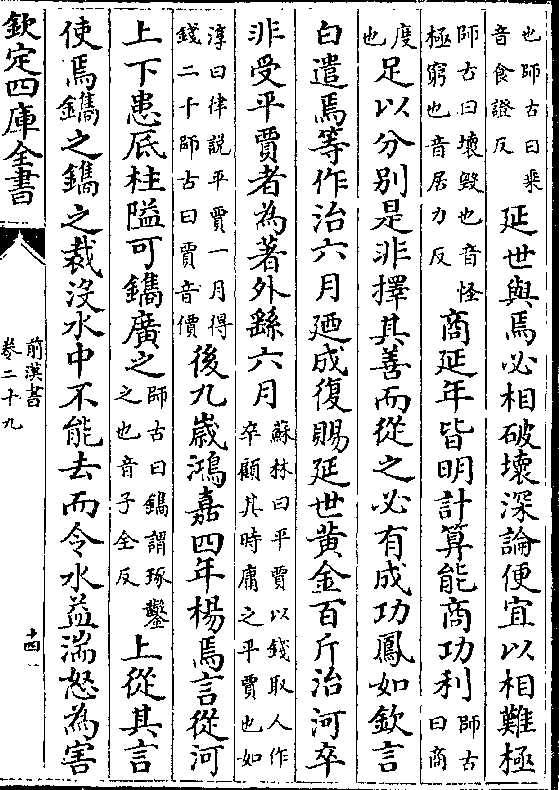 也師古曰乗
音食證反
延世與焉必相破壞深論便宜以相難極
師古曰壞毀也音怪
極窮也音居力反
商延年皆明計算能商功利
師古
曰商
度
也
足以分别是非擇其善而從之必有成功鳳如欽言
白遣焉等作治六月廼成復賜延世黄金百斤治河卒
非受平賈者為著外繇六月
蘇林曰平賈以錢取人作
卒顧其時庸之平賈也如
淳曰律説平賈一月得
錢二千師古曰賈音價
後九嵗鴻嘉四年楊焉言從河
上下患底柱隘可鐫廣之
師古曰鐫謂琢鑿
之也音子全反
上從其言
使焉鐫之鐫之裁没水中不能去而令水益湍怒為害
欽定四庫全書
前漢書
卷二十九
十四